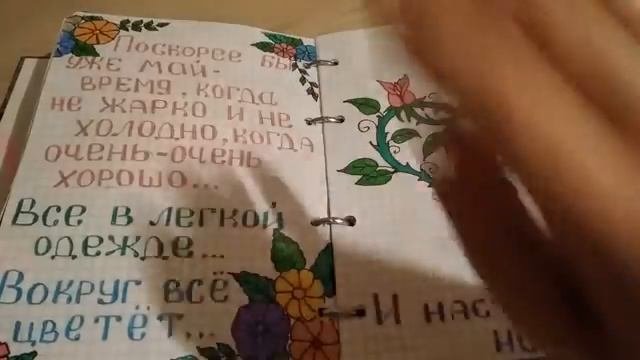 Поскорее бы
уже май-
время, когда
не жарко и не
холодно, когда
очень-очень
хорошо...
Все в легкой
одежде...
Вокруг всё
цветёт...
И нас